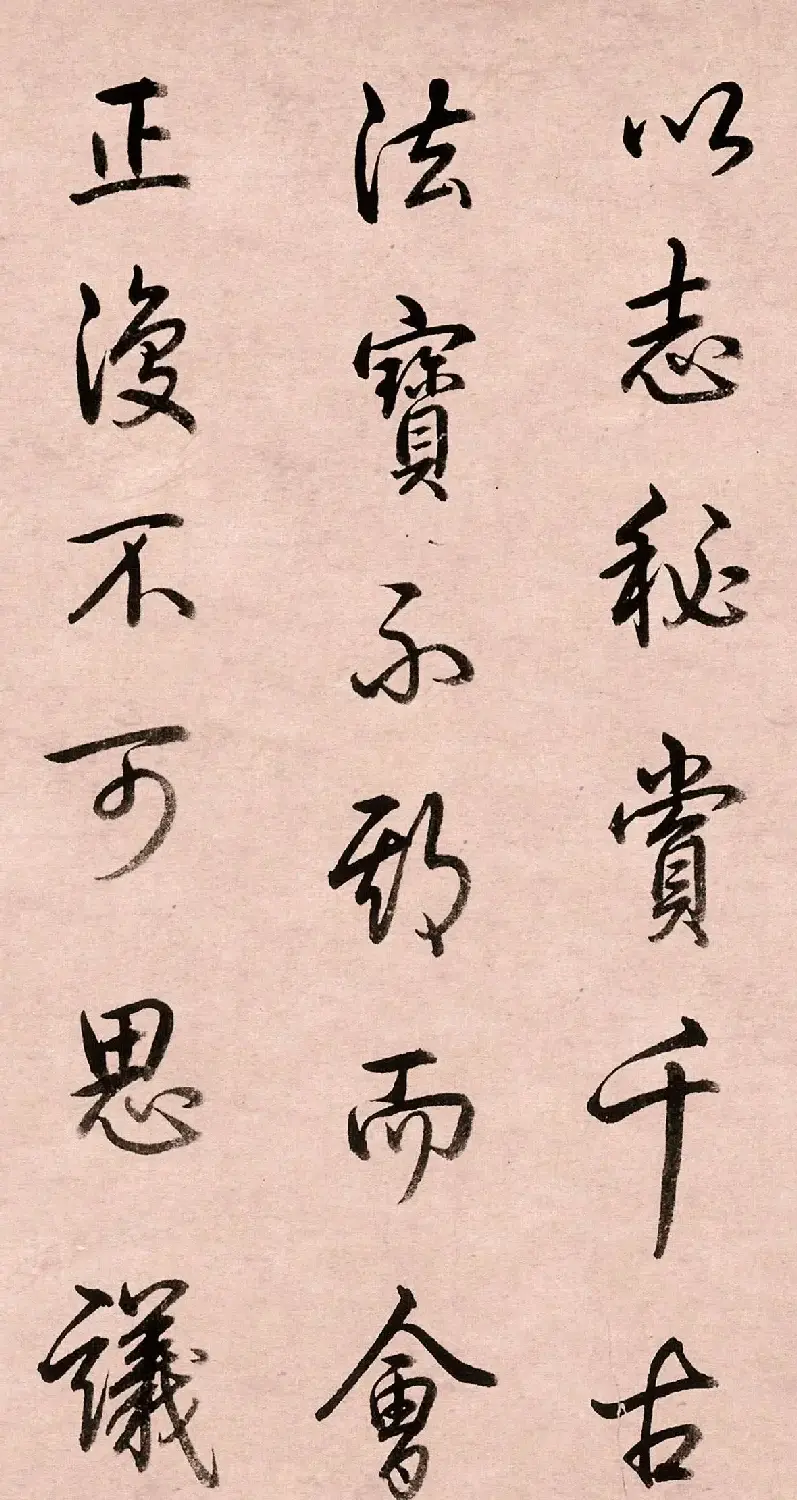 以志秘賞千古
法寶不期而會
正復不可思議